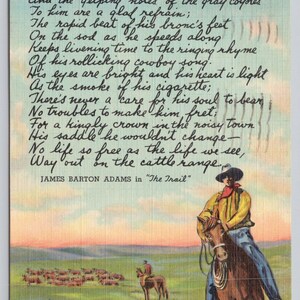 And the yelping notes of the gray coyote
To him are a glad refrain;
The rapid beat of his bronc's feet
On the sod as he speeds along
Keeps livening time to the ringing rhyme
Of his rollicking cowboy song.
His eyes are bright and his heart is light
As the smoke of his cigarette;
There's never a care for his soul to bear,
No troubles to make him fret;
For a kingly crown in the noisy town
His saddle he wouldn't change—
No life so free as the life we see,
Way out on the cattle range.
JAMES BARTON ADAMS in "The Trail"